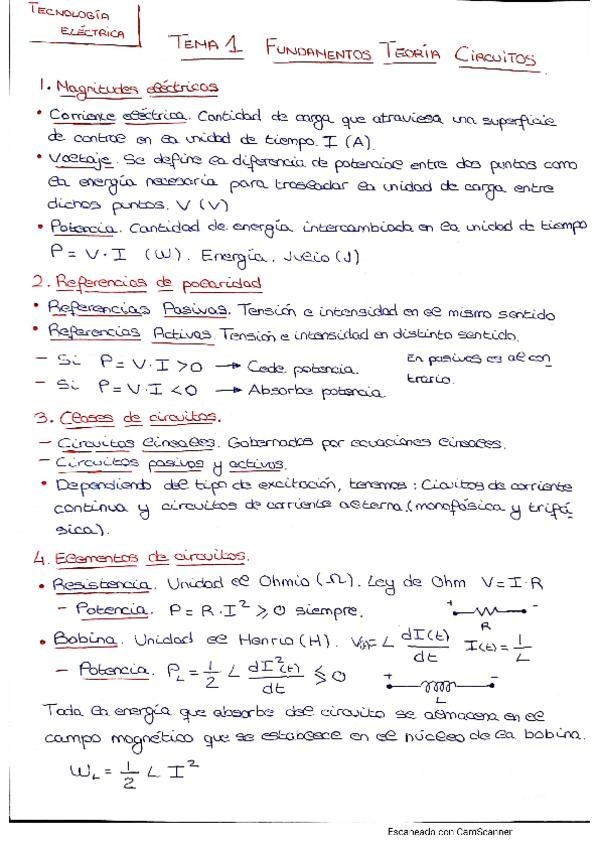 TECNOLOGÍA
ELÉCTRICA
TEMA 1 FUNDAMENTOS TEORÍA CIRCUITOS.
1. Magnitudes eléctricas
• Corriente eléctrica. Cantidad de carga que atraviesa una superficie
de control en la unidad de tiempo. I (A).
• Voltaje. Se define la diferencia de potencial entre dos puntos como
la energía necesaria para trasladar la unidad de carga entre
dichos puntos. V (V)
• Potencia. Cantidad de energía intercambiada en la unidad de tiempo
P = V · I (W). Energía. Julio (J)
2. Referencias de polaridad
• Referencias Pasivas. Tensión e intensidad en el mismo sentido
• Referencias Activas. Tensión e intensidad en distinto sentido.
– Si P = V · I > 0 → Cede potencia.
En pasivas es al con
– Si P = V · I < 0 → Absorbe potencia.
trario.
3. Clases de circuitos.
– Circuitos lineales. Gobernados por ecuaciones lineales.
– Circuitos pasivos y activos.
• Dependiendo del tipo de excitación, tenemos: Circuitos de corriente
continua y circuitos de corriente alterna (monofásica y trifá-
sica).
4. Elementos de circuitos.
• Resistencia. Unidad el Ohmio (Ω). Ley de Ohm V = I · R
– Potencia. P = R · I² ⩾ 0 siempre.
+ -
R
• Bobina. Unidad el Henrio (H). L dI(t)/dt I(t) = 1/L
– Potencia. P_L = 1/2 L dI²(t)/dt ⩽ 0
+ -
L
Toda la energía que absorbe del circuito se almacena en el
campo magnético que se establece en el núcleo de la bobina.
W_L = 1/2 L I²
Escaneado con CamScanner